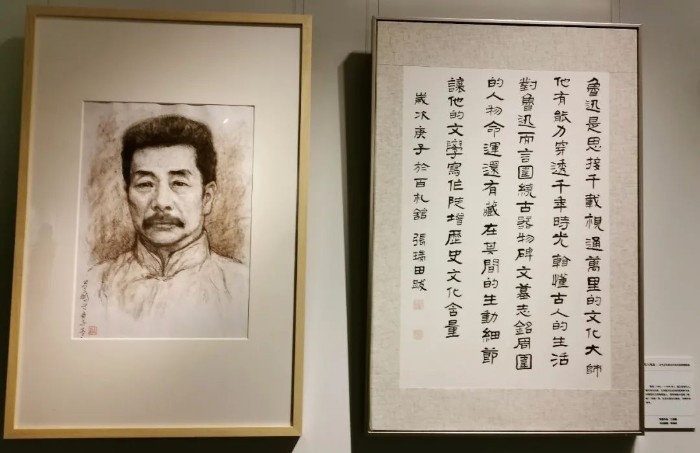 魯迅是思接千載視通萬里的文化大師
他有能力穿透千年時光懂古人的生活
對魯迅而言圍繞古器物碑文墓志銘周圍
的人物命運還有藏在其間的生動細節
讓他的文學寫作陡增歷史文化含量
歲次庚子於百札館 張瑞田跋